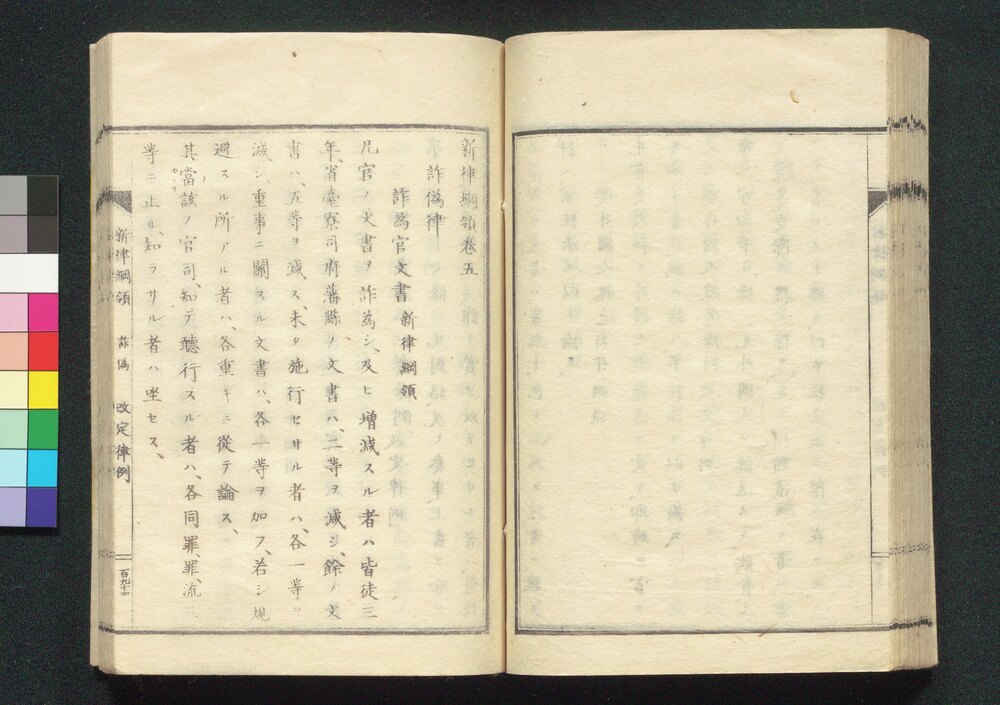 新律綱領卷五
詐僞律
詐爲官文書 新律綱領
凡官ノ文書ヲ詐爲シ、及ヒ增減スル者ハ皆徒三
年、省臺寮司府藩縣ノ文書ハ、二等ヲ減シ、餘ノ文
書ハ、五等ヲ減ス、未タ施行セサル者ハ、各一等ヲ
減シ、重事ニ關スル文書ハ、各一等ヲ加フ、若シ規
避スル所アル者ハ、各重キニ從テ論ス、
其當該ノ官司、知テ聽行スル者ハ、各同罪、罪、流三
等ニ止ル、知ラサル者ハ坐セス、
新律綱領 詐僞 改定律例